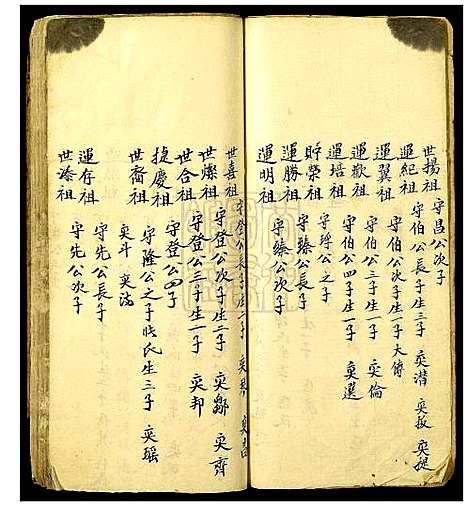 世揚祖 守昌公次子
運紀祖 守伯公長子生三子 奕潛 奕扳 奕挺
運翼祖 守伯公次子生一子大傳
運歡祖 守伯公三子生一子 奕倫
運培祖 守伯公四子生一子 奕選
舒榮祖 守琈公之子
運勝祖 守臻公長子
運明祖 守臻公次子
世喜祖 守登公長子生二子 奕
世爍祖 守登公次子生二子 奕鄒 奕齊
世合祖 守登公三子生一子 奕邦
捷慶祖 守登公四子
世齋祖 守隆公之子 氏生三子 奕瑶
奕斗 奕滿
運存祖 守先公長子
世溱祖 守先公次子